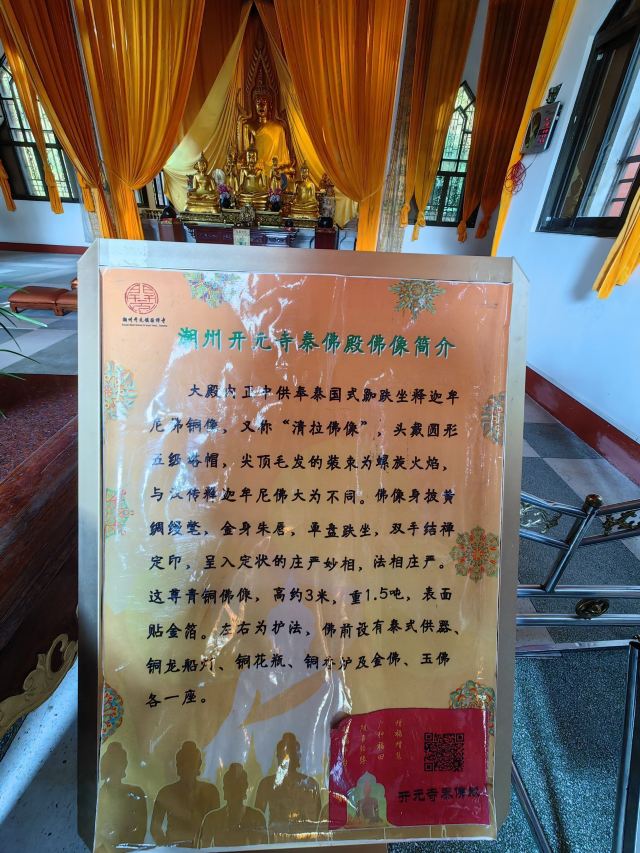 潮州开元镇国禅寺
潮州开元寺泰佛殿佛像简介
大殿内正中供奉泰国式跏趺坐释迦牟
尼佛铜像，又称“清拉佛像”，头戴圆形
五级塔帽，尖顶毛发的装束为螺旋火焰，
与汉传释迦牟尼佛大为不同。佛像身披黄
绸缦氅，金身朱唇，单盘趺坐，双手结禅
定印，呈入定状的庄严妙相，法相庄严。
这尊青铜佛像，高约3米，重1.5吨，表面
贴金箔。左右为护法，佛前设有泰式供器、
铜龙船灯、铜花瓶、铜香炉及金佛、玉佛
各一座。
增福增慧
广种福田
开元寺泰佛殿